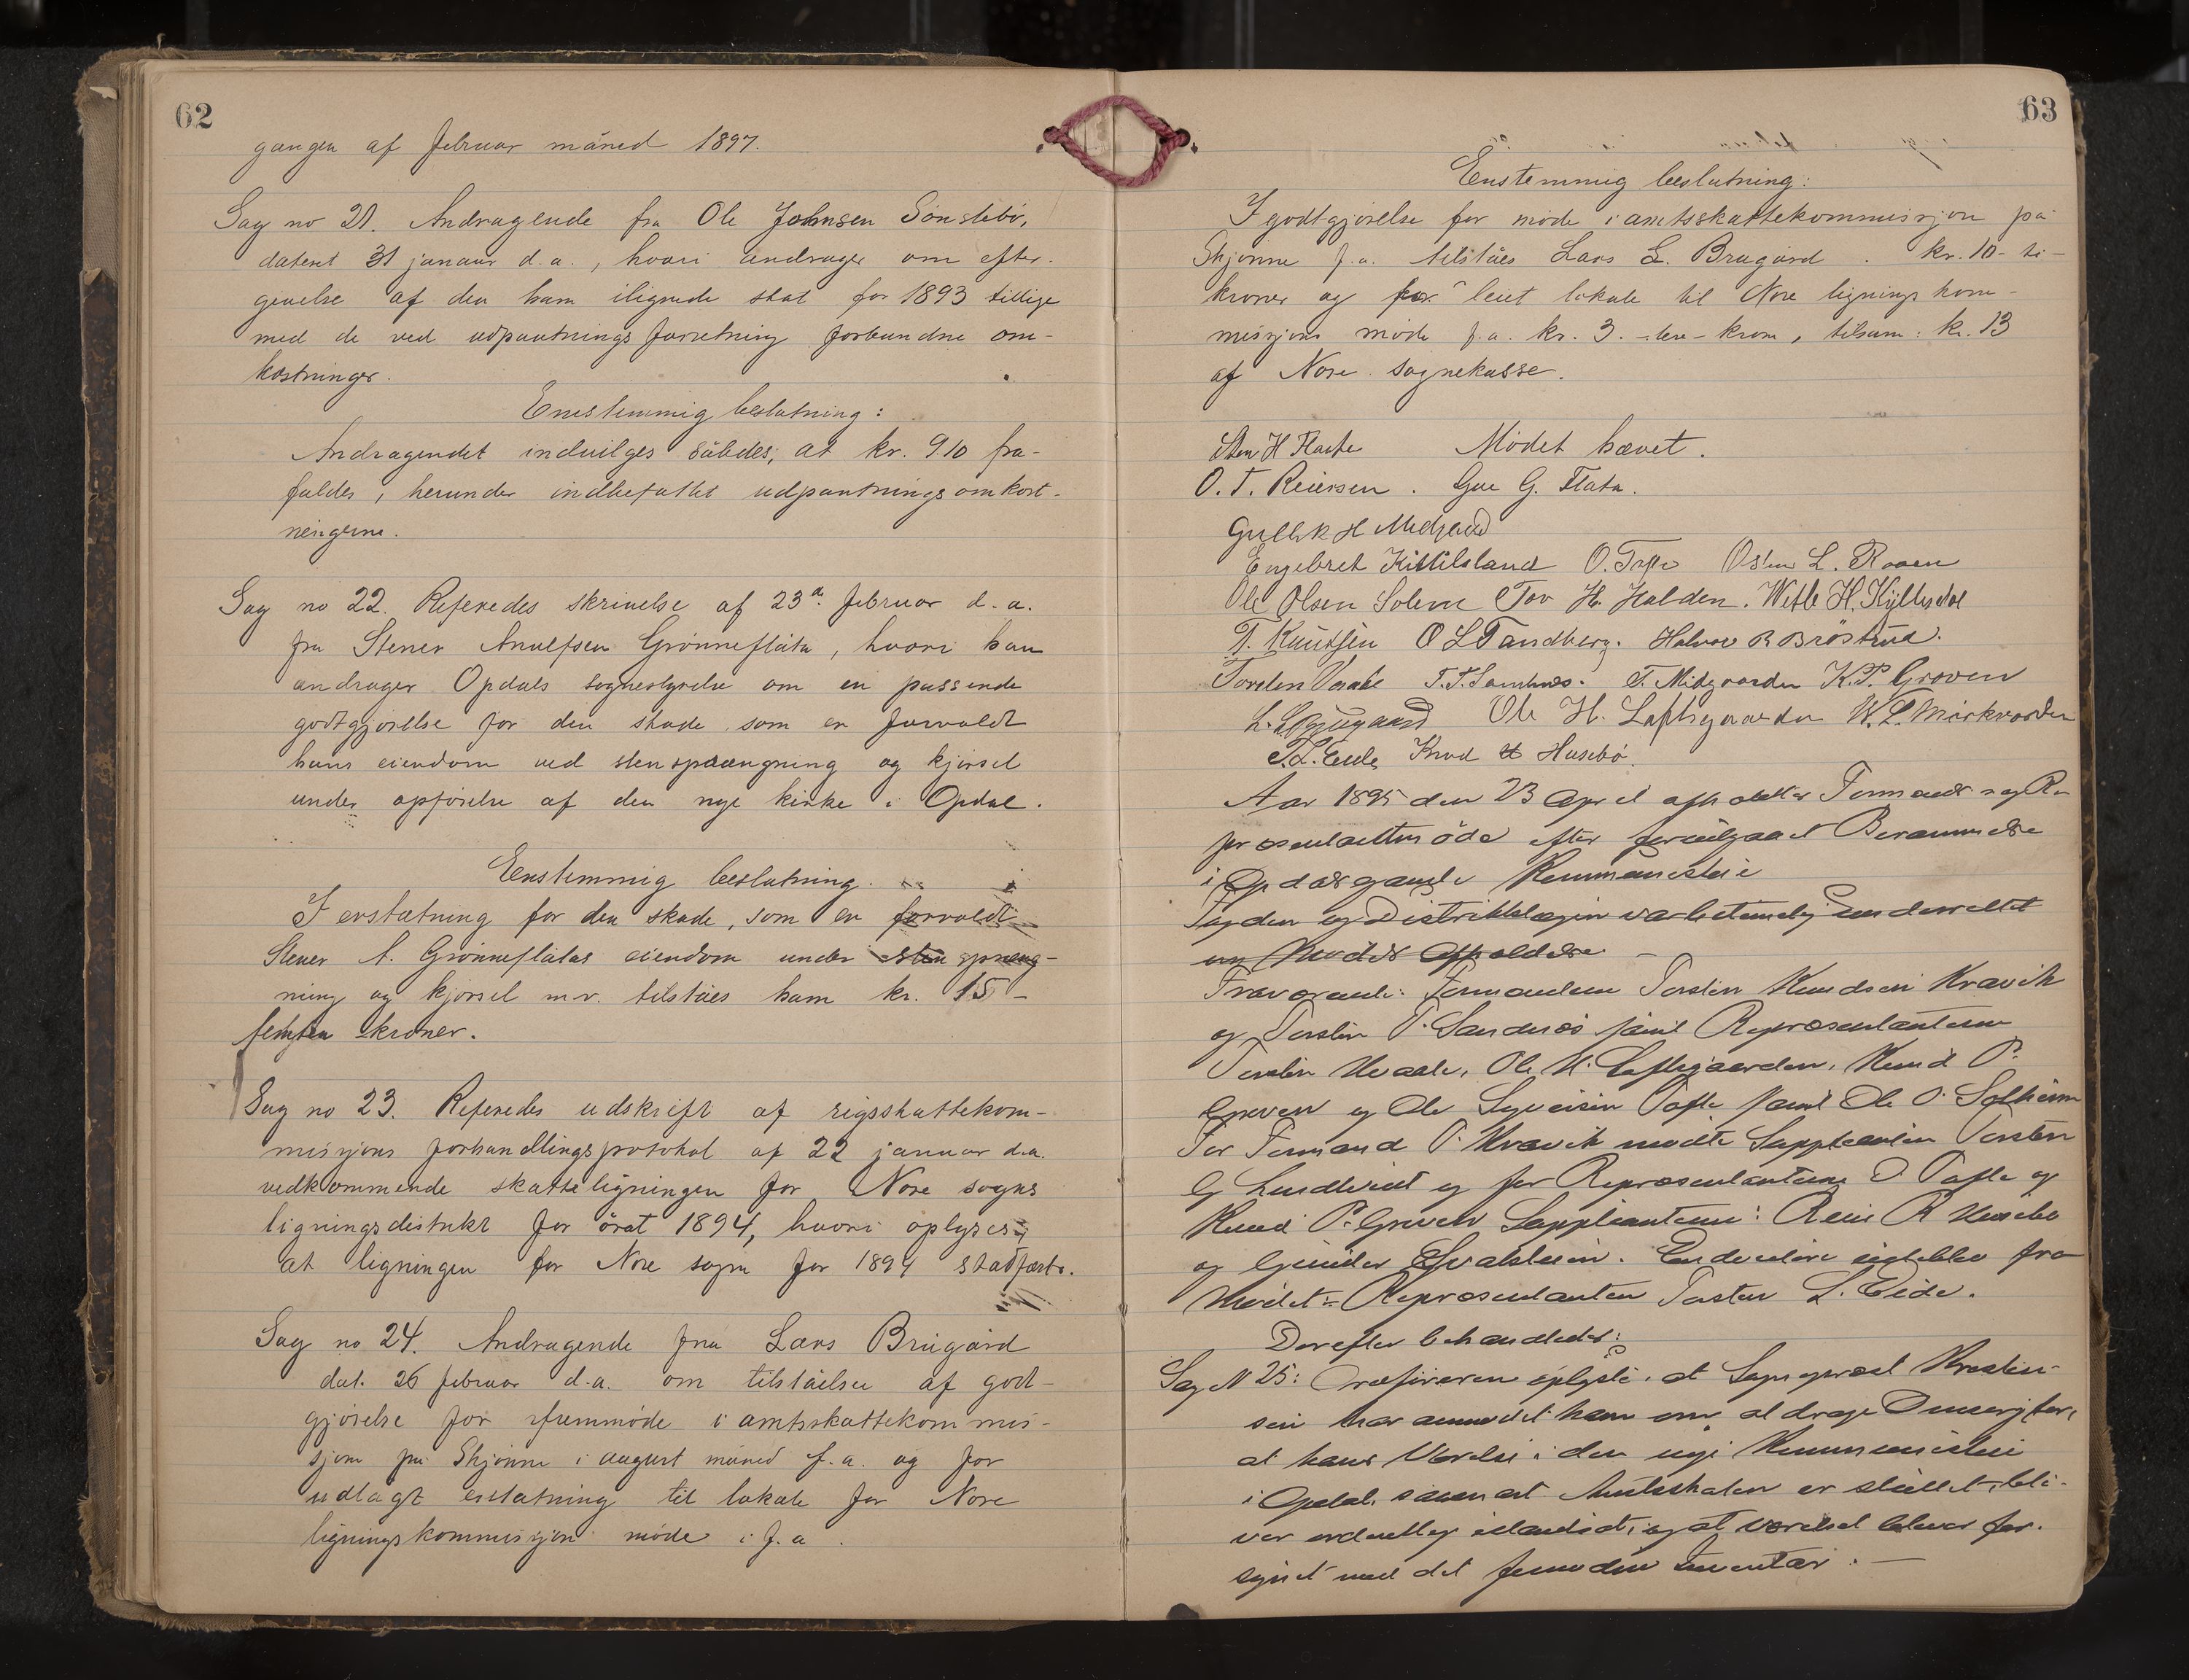 62
gangen af februar måned 1897.
Sag no 21. Andragende fra Ole Johnsen Sönstebö,
dateret 31 januar d.a., hvori andrages om efter-
givelse af den ham ilignede skat for 1893 tillige
med de ved udpantningsforretning forbundne om-
kostninger.
Enstemmig beslutning:
Andragendet indvilges således, at kr. 9.10 fra-
faldes, herunder indbefattet udpantningsomkost-
ningerne.
Sag no 22. Refereredes skrivelse af 23d. februar d.a.
fra Stener Anulfsen Grönneflåta, hvori han
andrager Opdals sognestyrelse om en passende
godtgjörelse for den skade, som er forvoldt
hans eiendom ved stensprængning og kjörsel
under opförelse af den nye kirke i Opdal.
Enstemmig beslutning.
I erstatning for den skade, som er forvoldt
Stener A. Grönneflåtas eiendom under stenspræng-
ning og kjörsel m.v. tilståes ham kr. 15 -
femten kroner.
Sag no 23. Refereredes udskrift af rigsskattekom-
misjons forhandlingsprotokol af 22 januar d.a.
vedkommende skatteligningen for Nore sogns
ligningsdistrikt for året 1894, hvori oplyses,
at ligningen for Nore sogn for 1894 stadfæstes.
Sag no 24. Andragende fra Lars Brugård
dat. 26 februar d.a. om tilståelse af god-
gjörelse for fremmöde i amtsskattekommis-
sjon på Skjönne i august måned f.a. og for
udlagt erstatning til lokale for Nore
ligningskommisjons möde i f.a.
63
Enstemmig beslutning:
I godtgjörelse for möde i amtsskattekommisjon på
Skjönne f.a. tilståes Lars L. Brugård kr. 10 - ti -
kroner og for leiet lokale til Nore ligningskom-
misjons möde f.a. kr. 3. - tre - kroner, tilsam: kr. 13
af Nore sognekasse.
Sten H Flaate Mödet hævet.
O. T. Reiersen. G. Flata.
Gullik H Medgaard
Engebret Kittilsland O. Tofte Osten L. Roaen
Ole Olsen Solem Tov H. Halden. Wetle H. Kyllesdal
T. Knutsen O L Tandberg. Halvor B Bröstrud.
Torsten Vaale T. T. Sandnes. T. Midgaarden K. P. Groven
L. L. Brugaard Ole H. Loftsgaarden W. T. Mörkvorden
T. L. Eide Knud H Husebö.
Aar 1895 den 23 April afholdtes Formands og Re-
præsentantmöde efter forudgaaet Berammelse
i Opdals gamle Kommunestue
Fogden og Distriktslægen var betimelig underrettet
om Mödets Afholdelse
Fraværende: Formanden Torsten Knudsen Kravik
og Torsten T. Sandnes samt Repræsentanterne
Torsten Vaale, Ole H. Loftsgaarden, Knud P.
Groven og Ole Syversen Tofte samt Ole O. Solheim
For Formand T. Kravik mödte Suppleanten Torsten
G Landtveit og for Repræsentanterne O. Tofte og
Knud P. Groven Suppleanterne: Reier R Husebø
og Gunder Evalsteen. Endvidere udeblev fra
Mödet: Repræsentanten Torsten L. Eide.
Derefter behandledes:
Sag N 25: Ordföreren oplyste, at Sogneprest Kristen-
sen har anmodet ham om at drage Omsorg for,
at hans Værelse i den nye Kommunestue
i Opdal, saasnart er stillet, bli-
ver ordentlig istandsat, og at Værelset bliver for-
synet med det fornødne Inventar. —